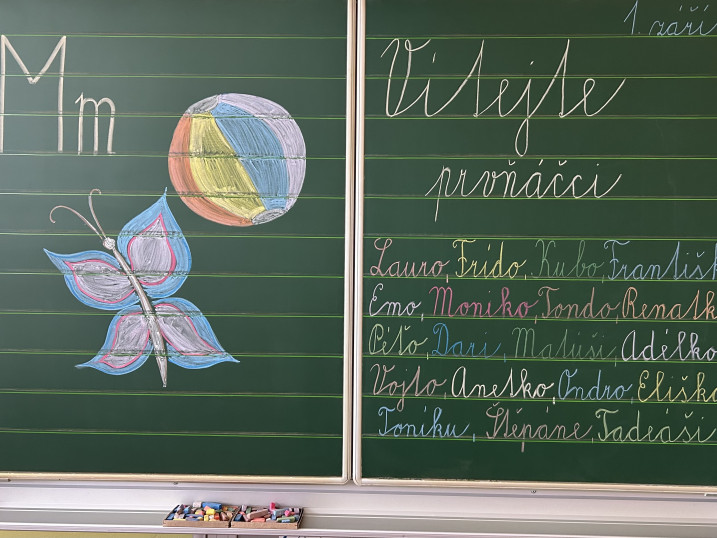 M m
1. září
Vítejte
prvňáčci
Lauro, Frído, Kubo, František
Emo, Moniko, Tondo, Renatk
Péťo, Dari, Matúši, Adélko
Vojto, Anetko, Ondro, Eliško
Toníku, Štěpáne, Tadeáši